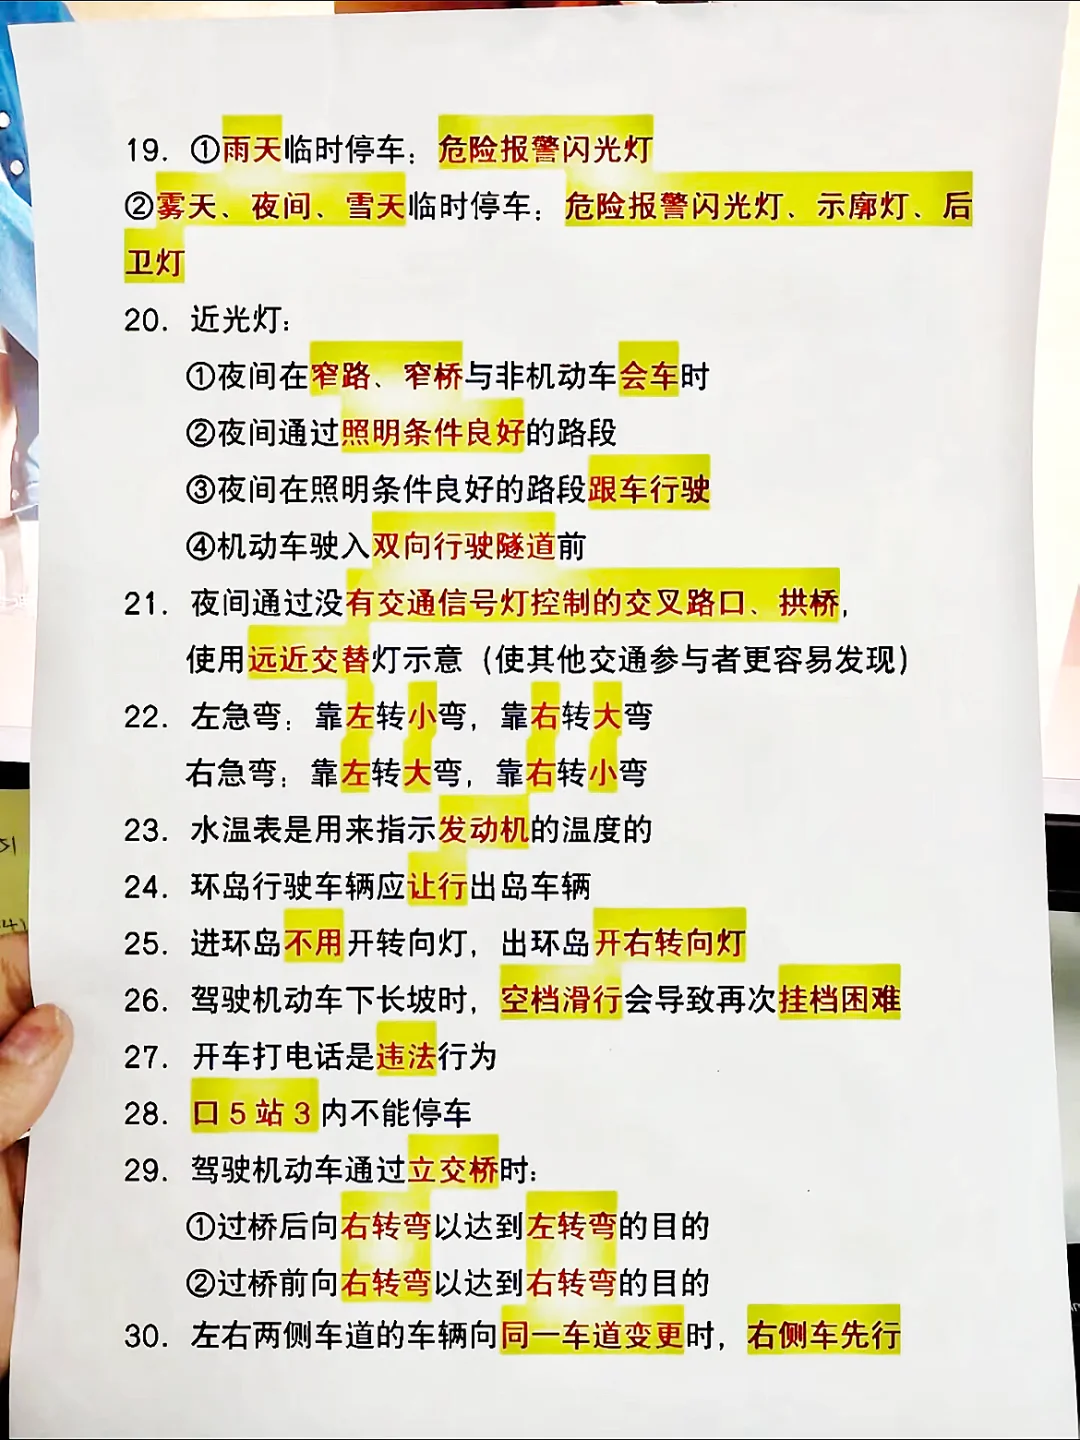 19. ①雨天临时停车：危险报警闪光灯
②雾天、夜间、雪天临时停车：危险报警闪光灯、示廓灯、后
卫灯
20. 近光灯：
①夜间在窄路、窄桥与非机动车会车时
②夜间通过照明条件良好的路段
③夜间在照明条件良好的路段跟车行驶
④机动车驶入双向行驶隧道前
21. 夜间通过没有交通信号灯控制的交叉路口、拱桥，
使用远近交替灯示意（使其他交通参与者更容易发现）
22. 左急弯：靠左转小弯，靠右转大弯
右急弯：靠左转大弯，靠右转小弯
23. 水温表是用来指示发动机的温度的
24. 环岛行驶车辆应让行出岛车辆
25. 进环岛不用开转向灯，出环岛开右转向灯
26. 驾驶机动车下长坡时，空档滑行会导致再次挂档困难
27. 开车打电话是违法行为
28. 口5站3内不能停车
29. 驾驶机动车通过立交桥时：
①过桥后向右转弯以达到左转弯的目的
②过桥前向右转弯以达到右转弯的目的
30. 左右两侧车道的车辆向同一车道变更时，右侧车先行